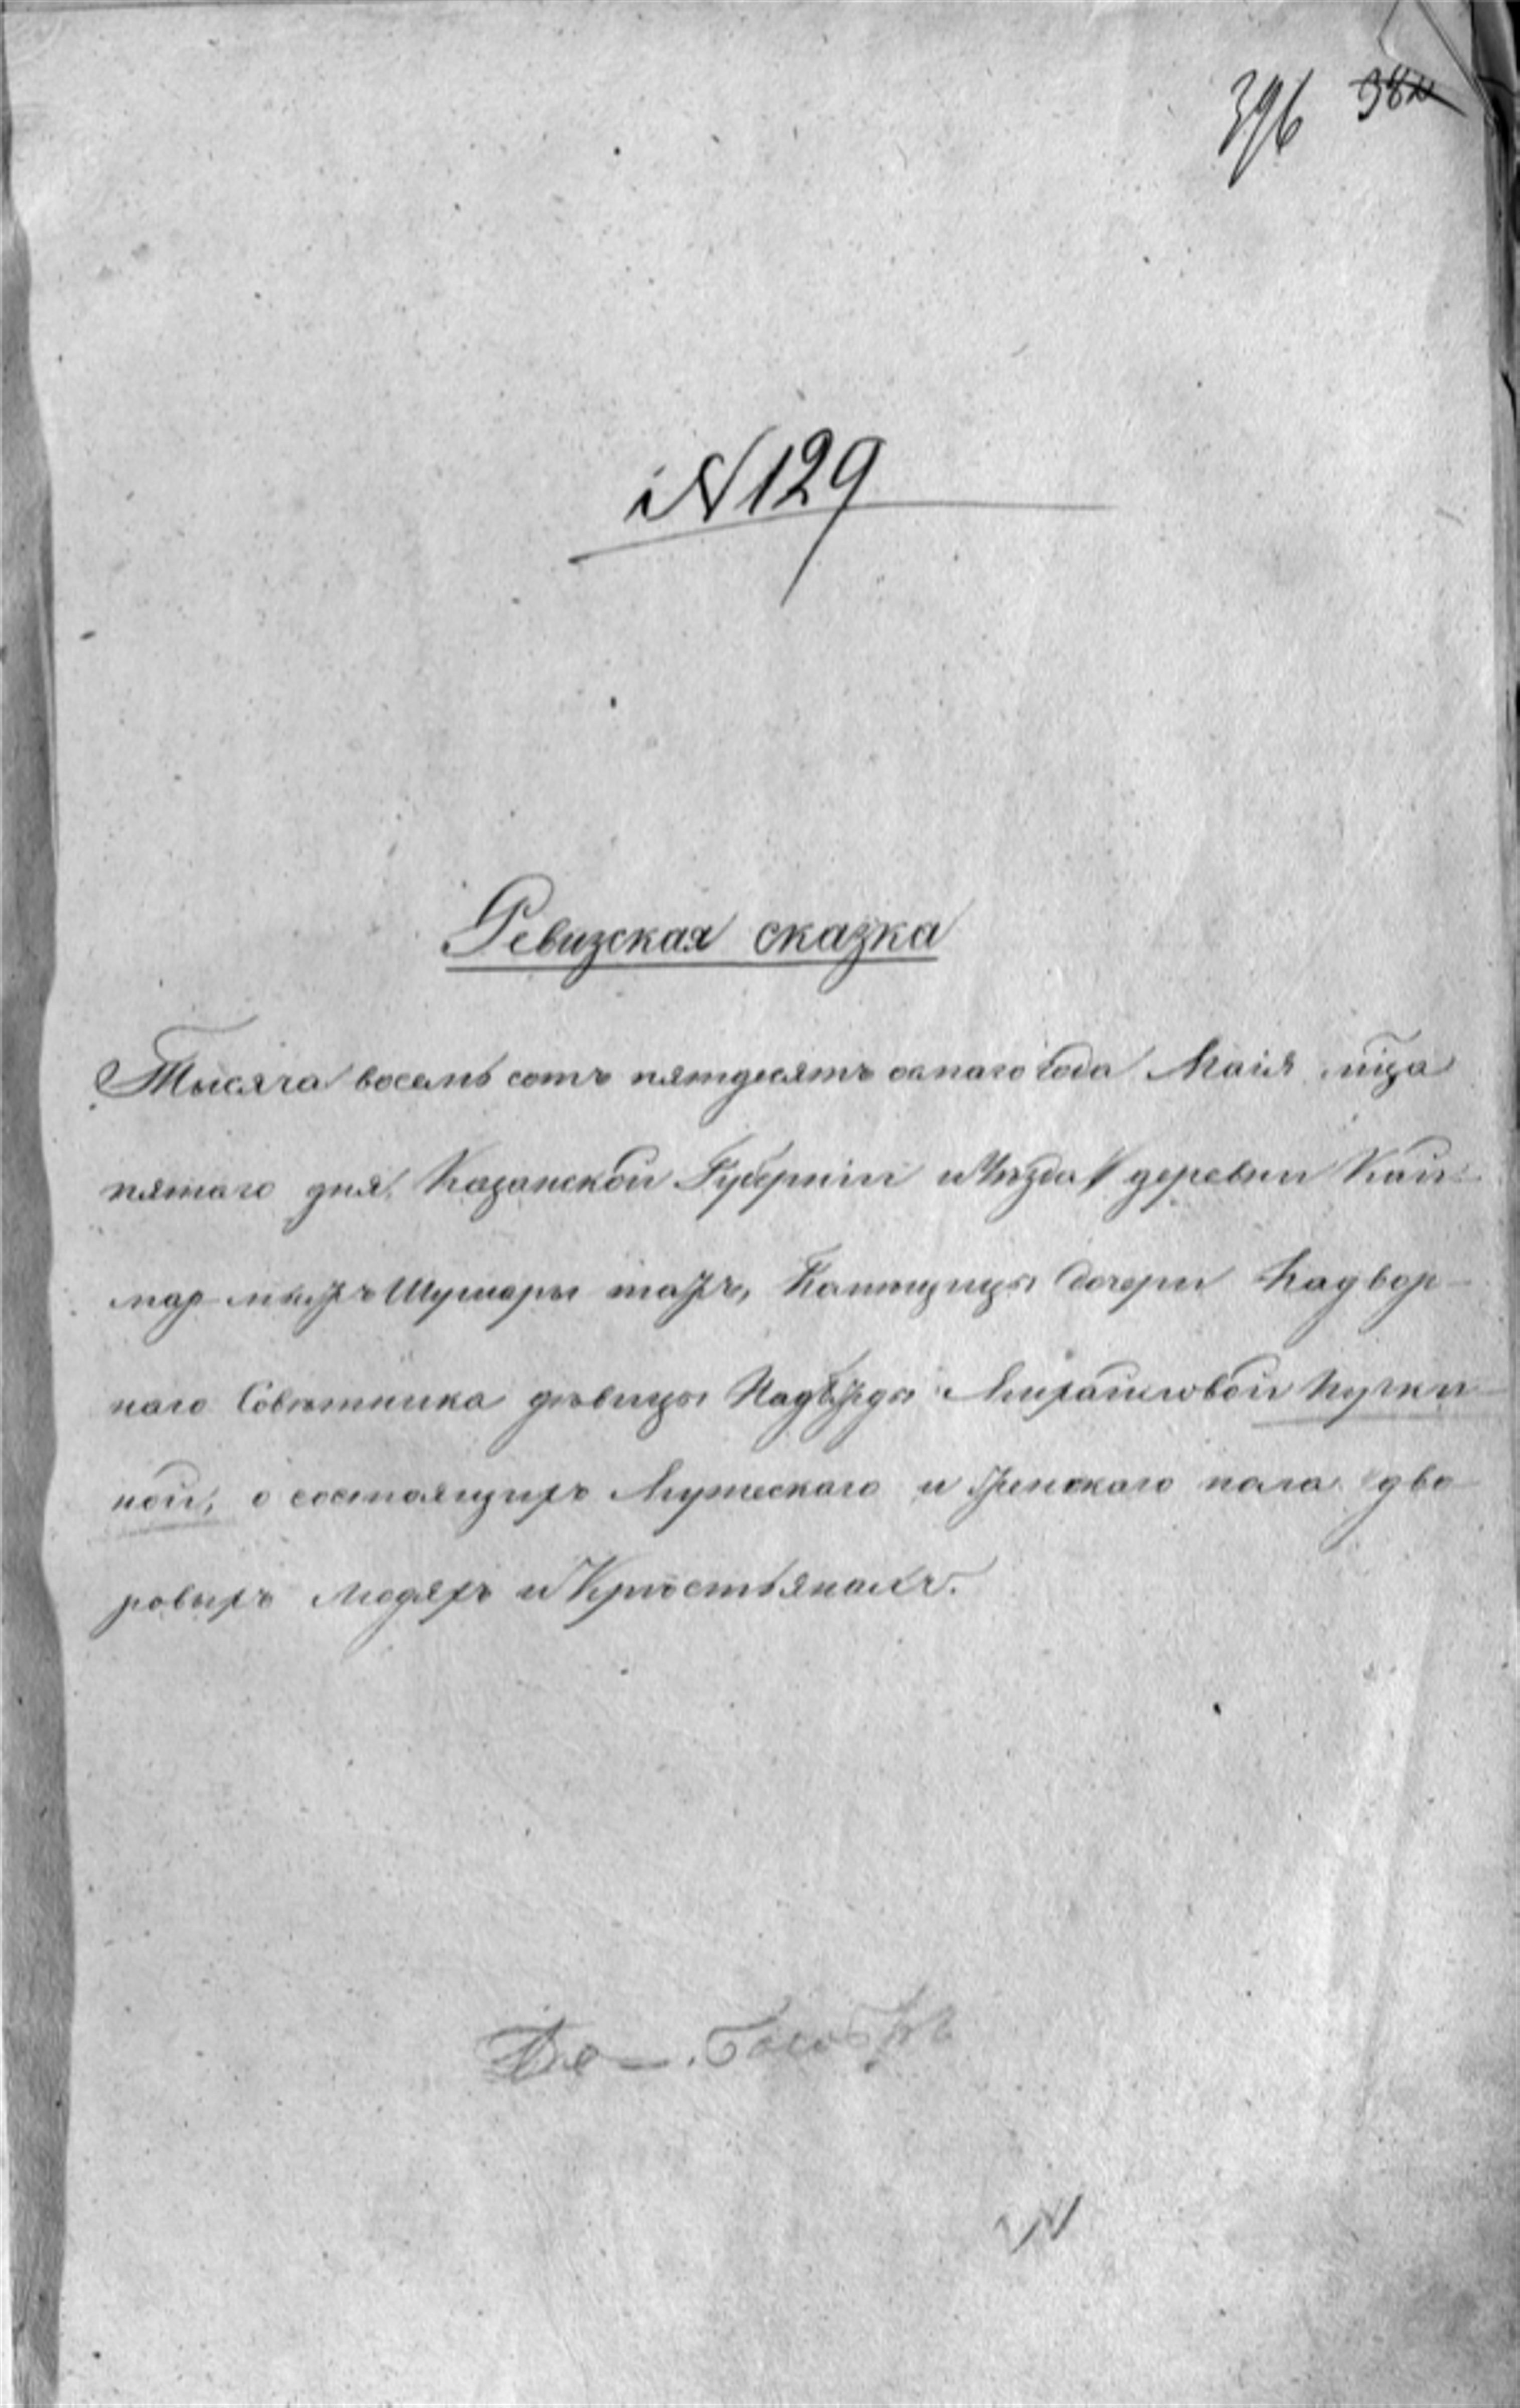 396 38
№ 129
Ревизская сказка
Тысяча восемь сотъ пятдесятъ осмаго года Маія мца
пятаго дня, Казанской Губерніи и Уѣзда деревни Кай-
мар тожъ, Помещицы дочери Надвор-
наго Совѣтника дѣвицы Надежды Михайловой
ной, о состоящихъ Мужескаго и Женскаго пола дво-
ровыхъ людяхъ и Крестьянахъ.